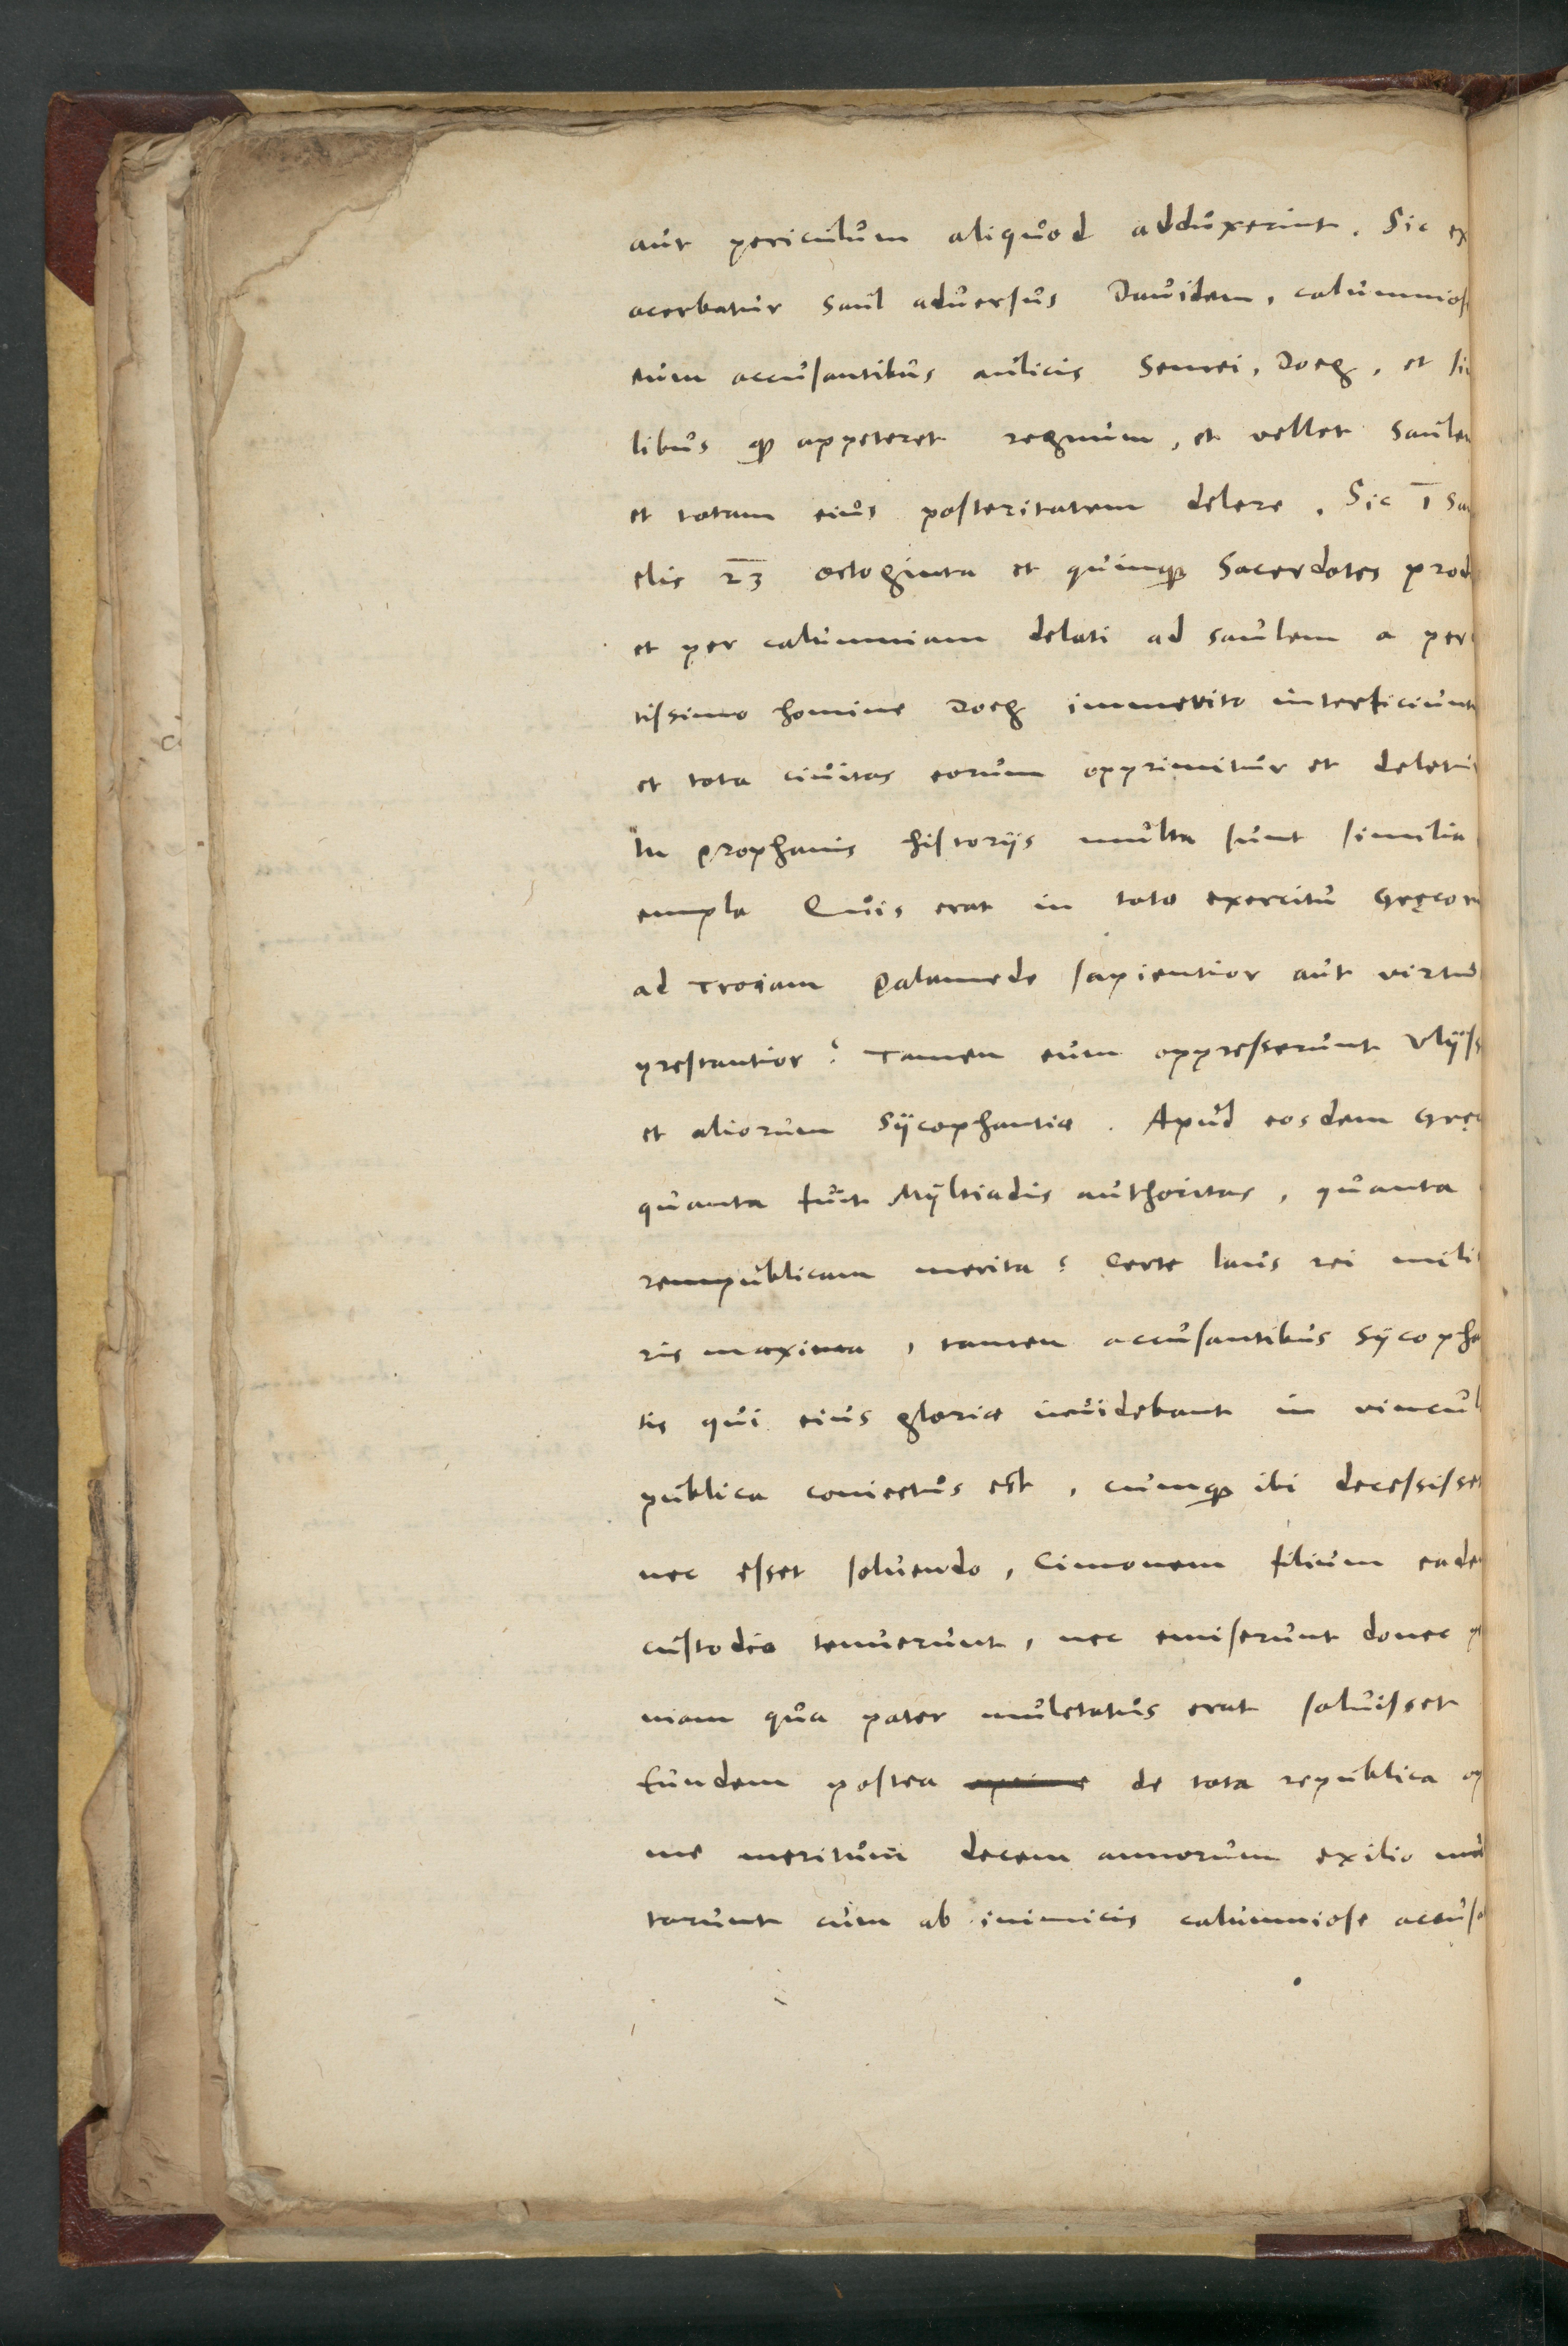 aut periculum aliquod adduxerint. Sic ex
acerbatur Saul aduersus Dauidem, calumnios
eum accusantibus aulicis Semei, Doeg, et si
libus qȝ appeteret regnum, et vellet Saulem
et totam eius posteritatem delere. Sic 1 Sa
elis 23 octoginta et quinqȝ Sacerdotes prod
et per calumniam delati ad Saulem a per
tissimo homine Doeg immerito interficiunt
et tota ciuitas eorum opprimitur et deletur
In prophanis historijs multa sunt similia
empla Quis erat in toto exercitu Gręcor
ad Troiam Palamede sapientior aut virtu
prestantior? Tamen eum oppresserunt Vlÿss
et aliorum Sÿcophantiæ. Apud eosdem Gręc
quanta fuit Mÿltiadis authoritas, quanta
rempublicam merita? Certe laus rei milit
ris maxima, tamen accusantibus Sÿcopha
tis qui eius gloriæ inuidebant in vincul
publica coniectus est, cumqȝ ibi decessisset
nec esset soluendo, Cimonem filium eade
custodia tenuerunt, nec emiserunt donec
niam qua pater mulctatus erat soluisset
Eundem postea de tota republica op
me meritum decem annorum exilio mul
tarunt cum ab inimicis calumniose accusa